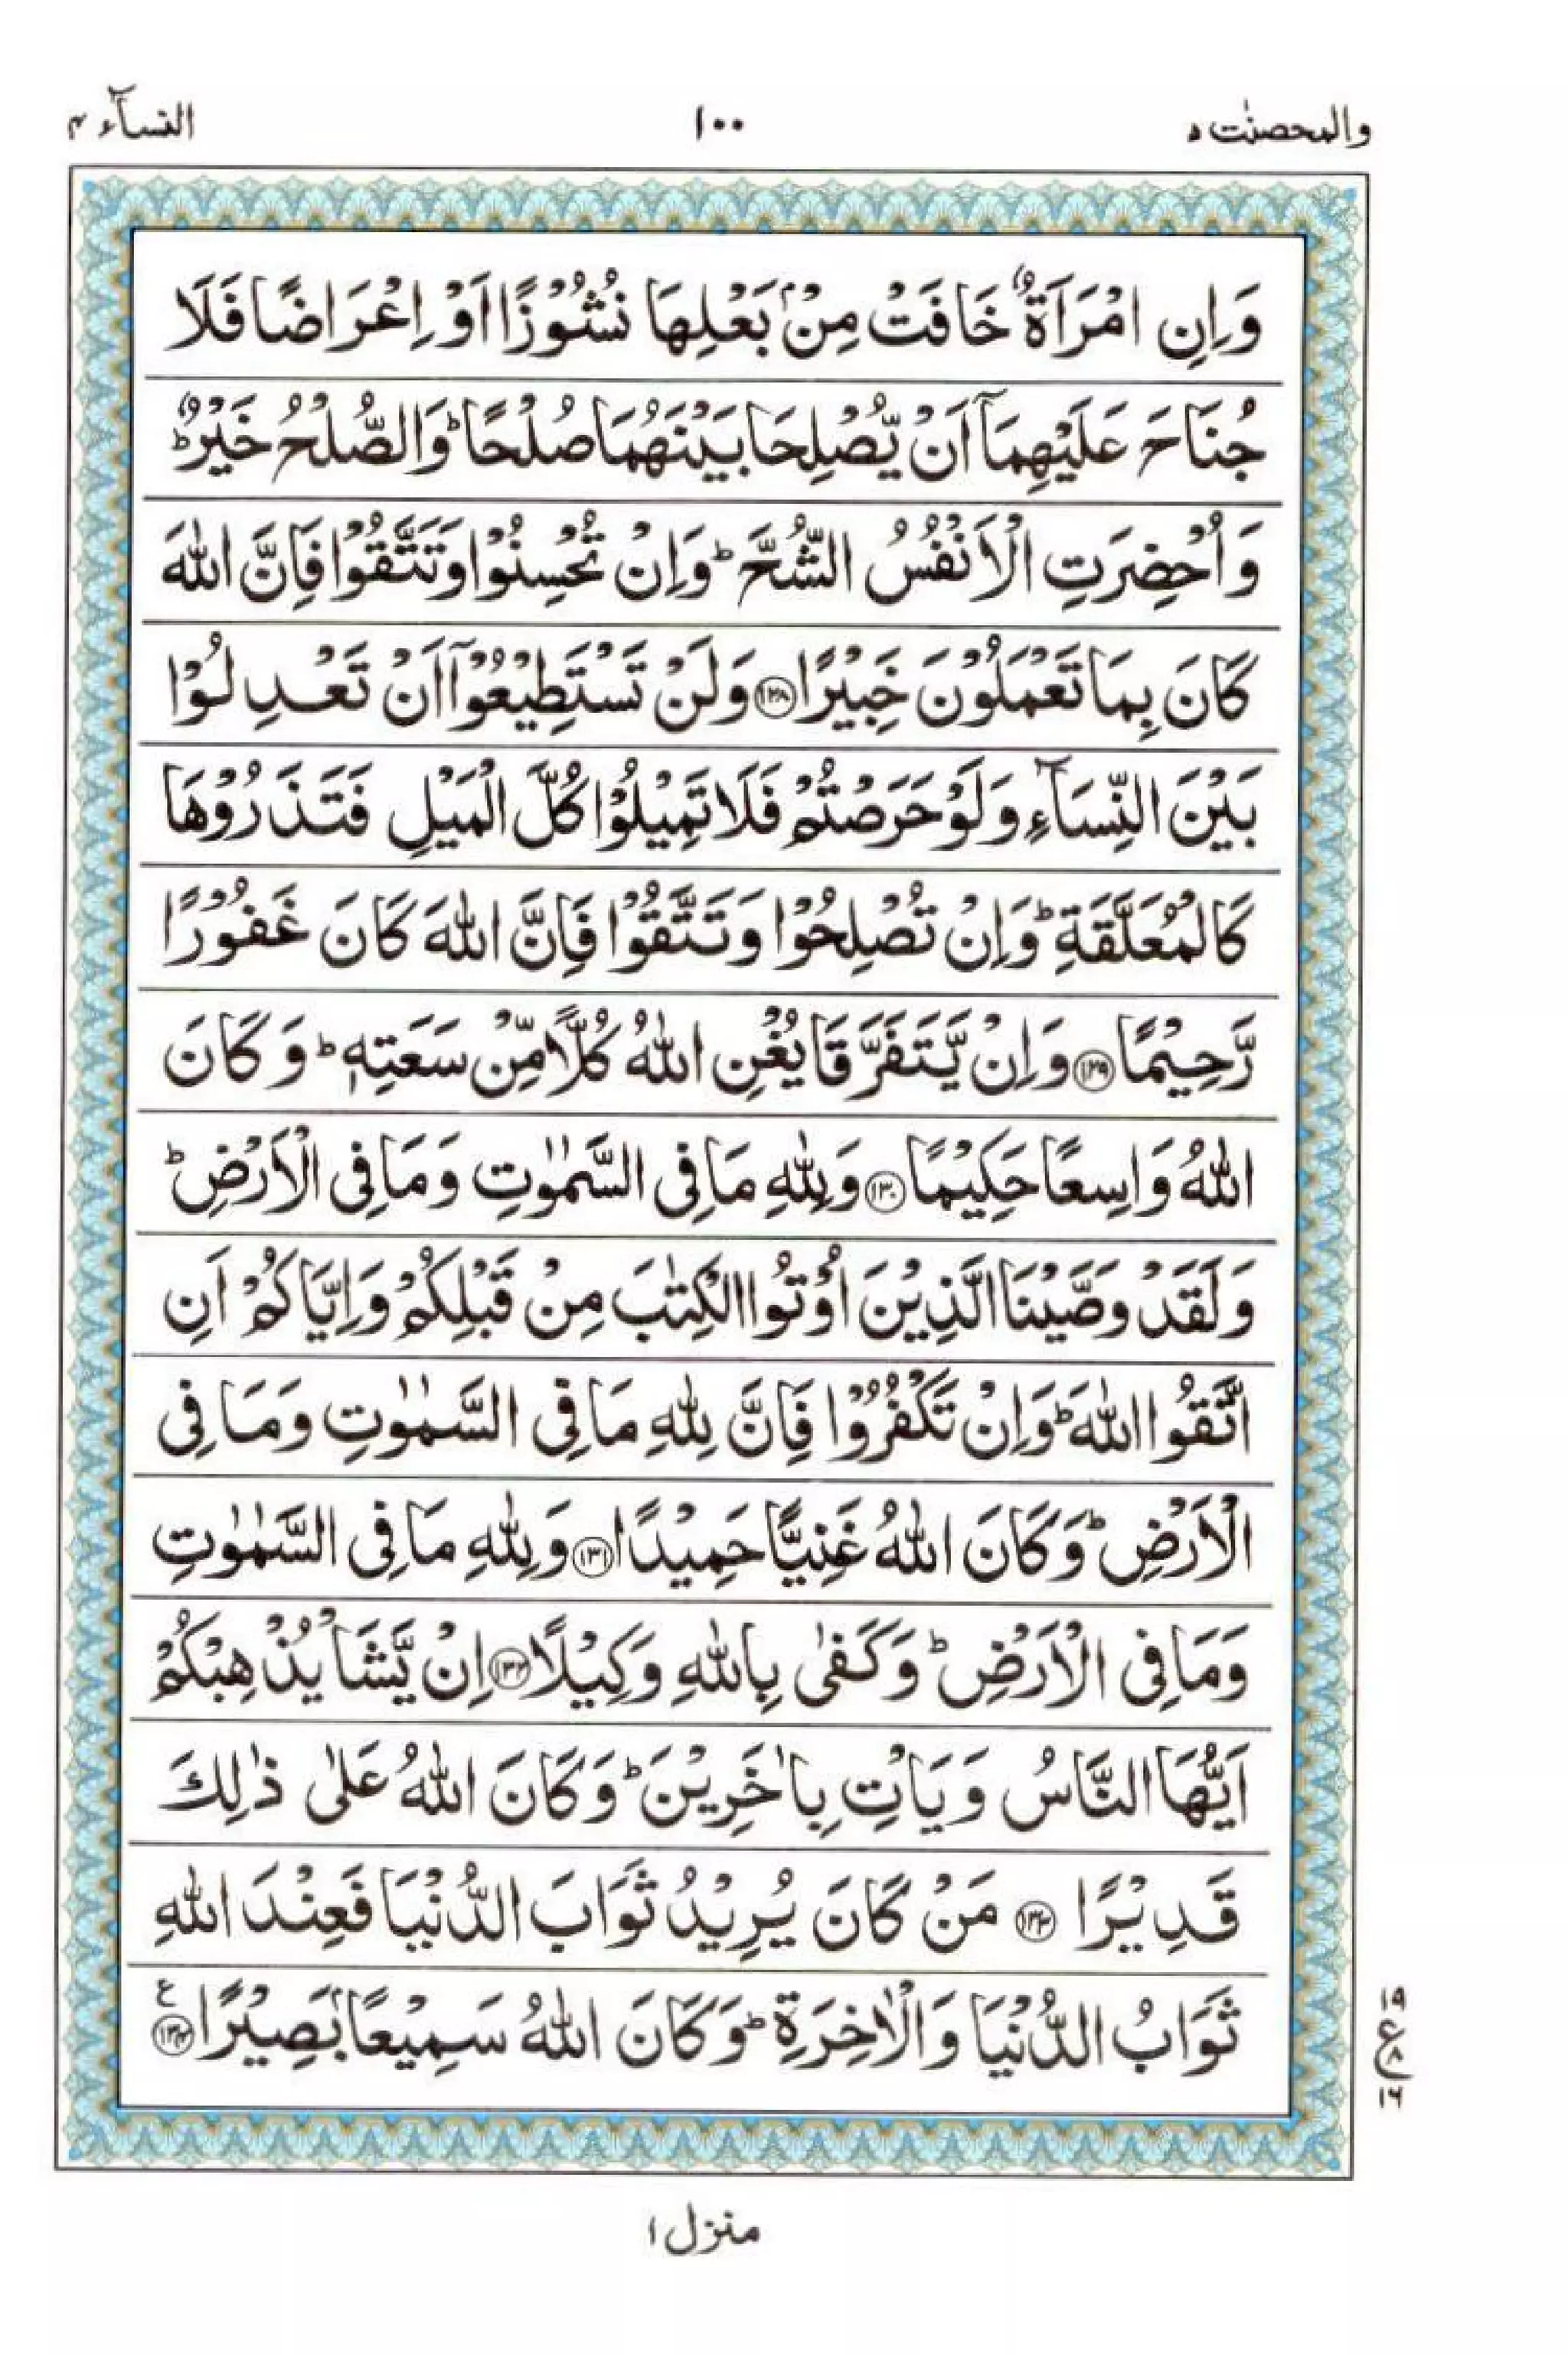 والمحصنٰت ٥
١٠٠
النسآء ٤
وَاِنِ امْرَاَةٌ خَافَتْ مِنْۢ بَعْلِهَا نُشُوْزًا اَوْ اِعْرَاضًا فَلَا
جُنَاحَ عَلَيْهِمَاۤ اَنْ يُّصْلِحَا بَيْنَهُمَا صُلْحًا ؕ وَالصُّلْحُ خَيْرٌ ؕ
وَاُحْضِرَتِ الْاَنْفُسُ الشُّحَّ ؕ وَاِنْ تُحْسِنُوْا وَتَتَّقُوْا فَاِنَّ اللّٰهَ
كَانَ بِمَا تَعْمَلُوْنَ خَبِيْرًا ۝١٢٨ وَلَنْ تَسْتَطِيْعُوْۤا اَنْ تَعْدِلُوْا
بَيْنَ النِّسَآءِ وَلَوْ حَرَصْتُمْ فَلَا تَمِيْلُوْا كُلَّ الْمَيْلِ فَتَذَرُوْهَا
كَالْمُعَلَّقَةِ ؕ وَاِنْ تُصْلِحُوْا وَتَتَّقُوْا فَاِنَّ اللّٰهَ كَانَ غَفُوْرًا
رَّحِيْمًا ۝١٢٩ وَاِنْ يَّتَفَرَّقَا يُغْنِ اللّٰهُ كُلًّا مِّنْ سَعَتِهٖ ؕ وَكَانَ
اللّٰهُ وَاسِعًا حَكِيْمًا ۝١٣٠ وَلِلّٰهِ مَا فِى السَّمٰوٰتِ وَمَا فِى الْاَرْضِ ؕ
وَلَقَدْ وَصَّيْنَا الَّذِيْنَ اُوْتُوا الْكِتٰبَ مِنْ قَبْلِكُمْ وَاِيَّاكُمْ اَنِ
اتَّقُوا اللّٰهَ ؕ وَاِنْ تَكْفُرُوْا فَاِنَّ لِلّٰهِ مَا فِى السَّمٰوٰتِ وَمَا فِى
الْاَرْضِ ؕ وَكَانَ اللّٰهُ غَنِيًّا حَمِيْدًا ۝١٣١ وَلِلّٰهِ مَا فِى السَّمٰوٰتِ
وَمَا فِى الْاَرْضِ ؕ وَكَفٰى بِاللّٰهِ وَكِيْلًا ۝١٣٢ اِنْ يَّشَاْ يُذْهِبْكُمْ
اَيُّهَا النَّاسُ وَيَاْتِ بِاٰخَرِيْنَ ؕ وَكَانَ اللّٰهُ عَلٰى ذٰلِكَ
قَدِيْرًا ۝١٣٣ مَنْ كَانَ يُرِيْدُ ثَوَابَ الدُّنْيَا فَعِنْدَ اللّٰهِ
ثَوَابُ الدُّنْيَا وَالْاٰخِرَةِ ؕ وَكَانَ اللّٰهُ سَمِيْعًۢا بَصِيْرًا ۝١٣٤ ع
١٩
ع ٨
١٦
منزل ١